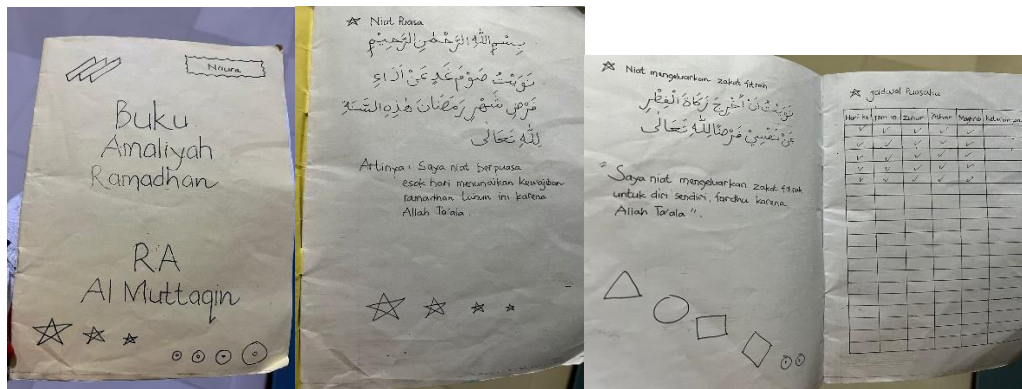 Naura
Buku
Amaliyah
Ramadhan
RA
Al Muttaqin
Niat Puasa
بِسْمِ اللهِ الرَّحْمٰنِ الرَّحِيْمِ
نَوَيْتُ صَوْمَ غَدٍ عَنْ اَدَاءِ
فَرْضِ شَهْرِ رَمَضَانَ هٰذِهِ السَّنَةِ
لِلّٰهِ تَعَالٰى
Artinya : Saya niat berpuasa
esok hari menunaikan kewajiban
ramadhan tahun ini karena
Allah Ta'ala
Niat mengeluarkan zakat fitrah
نَوَيْتُ اَنْ اُخْرِجَ زَكَاةَ الْفِطْرِ
عَنْ نَفْسِيْ فَرْضًا لِلّٰهِ تَعَالٰى
"Saya niat mengeluarkan zakat fitrah
untuk diri sendiri, fardhu karena
Allah Ta'ala".
Jadwal Puasaku
Hari ke Jam 10 Zuhur Ashar Magrib